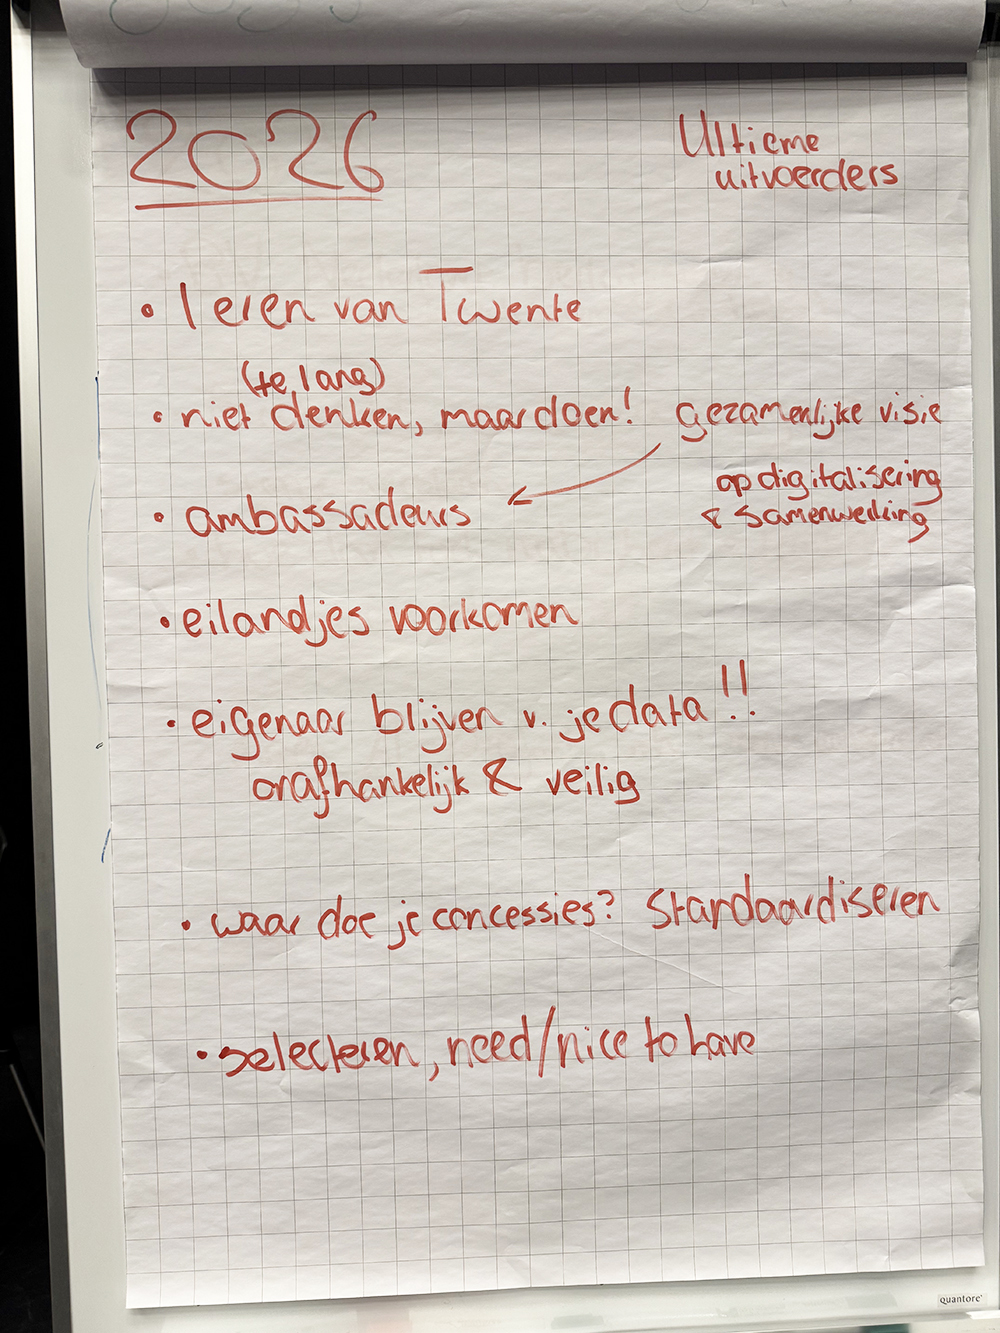 2026
Ultieme
uitvoerders
• leren van Twente
(te lang)
• niet denken, maar doen!
gezamenlijke visie
op digitalisering
& samenwerking
• ambassadeurs
• eilandjes voorkomen
• eigenaar blijven v. je data!!
onafhankelijk & veilig
• waar doe je concessies? Standaardiseren
• selecteren, need/nice to have
quantore